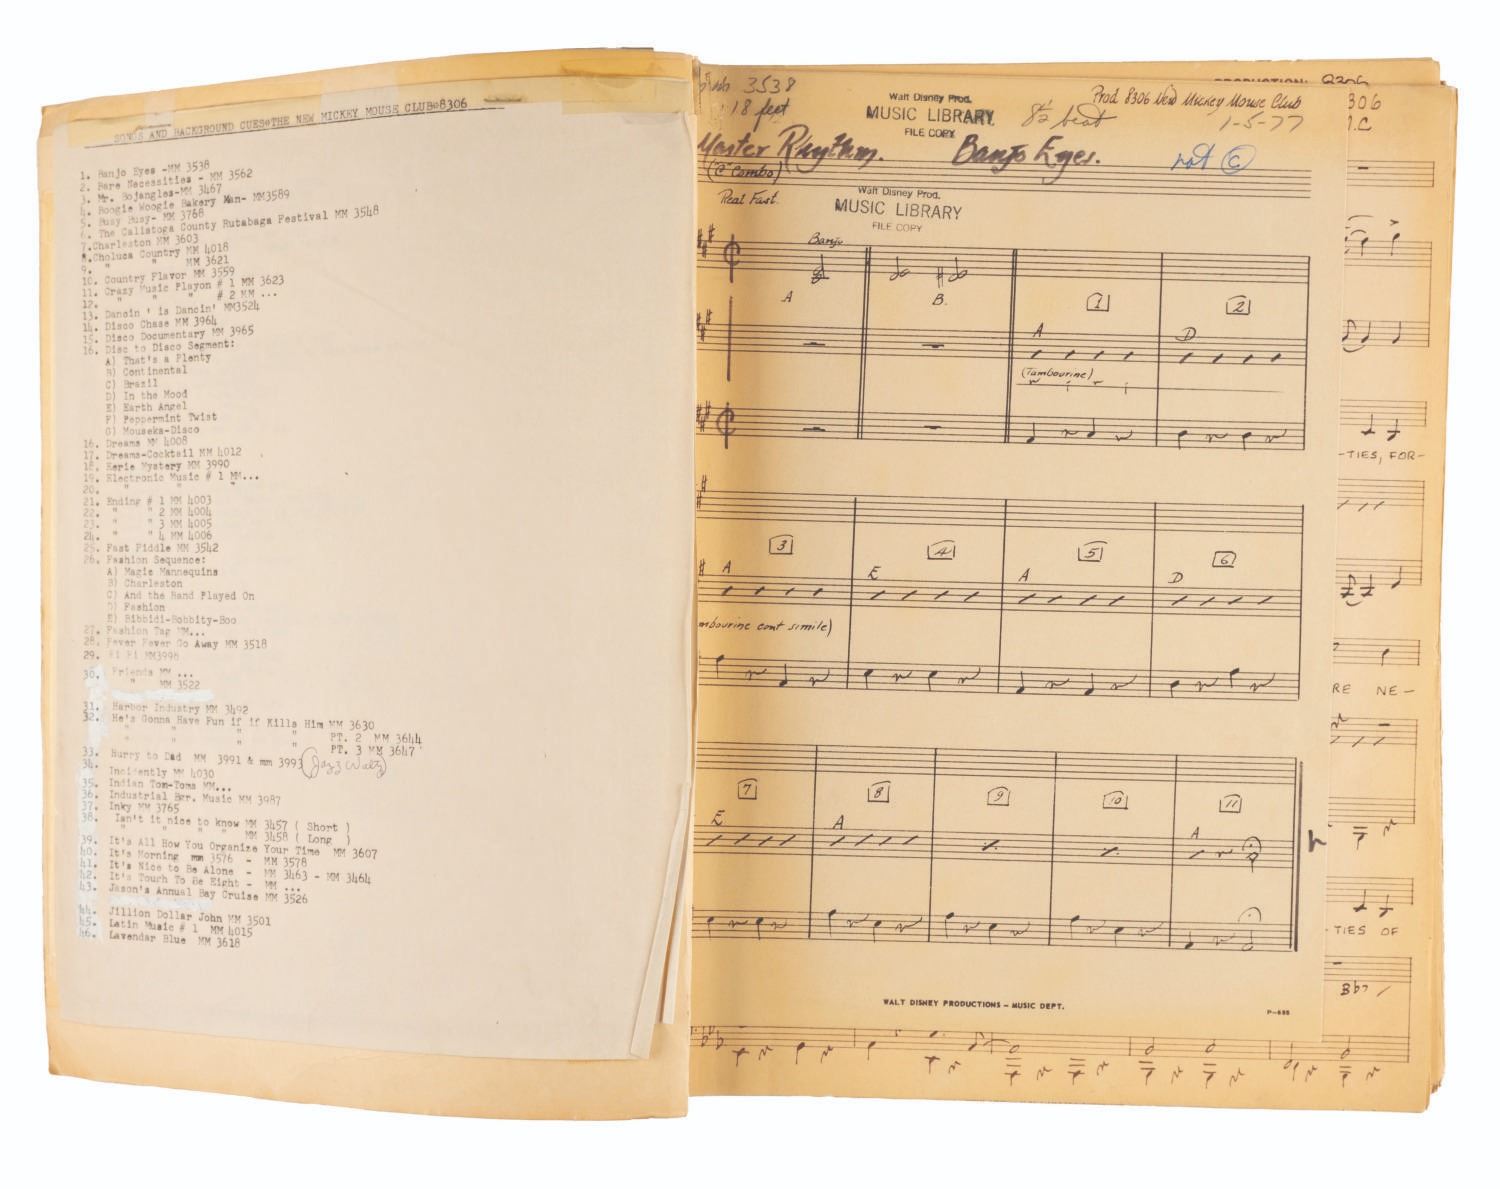 SONGS AND BACKGROUND CUES*THE NEW MICKEY MOUSE CLUB*8306
1. Banjo Eyes -MM 3538
2. Bare Necessities - MM 3562
3. Mr. Bojangles-MM 3467
4. Boogie Woogie Bakery Man- MM3589
5. Busy Busy- MM 3768
6. The Calistoga County Rutabaga Festival MM 3548
7.Charleston MM 3603
8.Choluca Country MM 4018
9. " " MM 3621
10. Country Flavor MM 3559
11. Crazy Music Playon # 1 MM 3623
12. " " " # 2 MM ...
13. Dancin ' is Dancin' MM3524
14. Disco Chase MM 3964
15. Disco Documentary MM 3965
16. Disc to Disco Segment:
A) That's a Plenty
B) Continental
C) Brazil
D) In the Mood
E) Earth Angel
F) Peppermint Twist
G) Mouseka-Disco
16. Dreams MM 4008
17. Dreams-Cocktail MM 4012
18. Eerie Mystery MM 3990
19. Electronic Music # 1 MM...
20. " " "
21. Ending # 1 MM 4003
22. " " 2 MM 4004
23. " " 3 MM 4005
24. " " 4 MM 4006
25. Fast Fiddle MM 3542
26. Fashion Sequence:
A) Magic Mannequins
B) Charleston
C) And the Band Played On
D) Fashion
E) Bibbidi-Bobbity-Boo
27. Fashion Tag MM...
28. Fever Fever Go Away MM 3518
29. Fi Fi MM3996
30. Friends MM ...
" MM 3522
31. Harbor Industry MM 3492
32. He's Gonna Have Fun if if Kills Him MM 3630
" " " " PT. 2 MM 3644
" " " " PT. 3 MM 3647
33. Hurry to Dad MM 3991 & mm 3993 (Jazz Waltz)
34. Incidently MM 4030
35. Indian Tom-Toms MM...
36. Industrial Bgr. Music MM 3987
37. Inky MM 3765
38. Isn't it nice to know MM 3457 ( Short )
" " " " MM 3458 ( Long )
39. It's All How You Organize Your Time MM 3607
40. It's Morning mm 3576 - MM 3578
41. It's Nice to Be Alone - MM 3463 - MM 3464
42. It's Tough To Be Eight - MM ...
43. Jason's Annual Bay Cruise MM 3526
44. Jillion Dollar John MM 3501
45. Latin Music # 1 MM 4015
46. Lavendar Blue MM 3618
3538
18 feet
Walt Disney Prod.
MUSIC LIBRARY
FILE COPY
8½ beat
Prod 8306 New Mickey Mouse Club
1-5-77
Master Rhythm.
Banjo Eyes.
not ©
("C" Combo)
Walt Disney Prod.
MUSIC LIBRARY
FILE COPY
Real Fast.
Banjo
A B.
1 2
A D
(Tambourine)
3 4 5 6
A E A D
mbourine cont simile)
7 8 9 10 11
E A A
WALT DISNEY PRODUCTIONS – MUSIC DEPT.
P-688
PRODUCTION: 8306
306
-TIES, FOR-
RE NE-
-TIES OF
Bb7